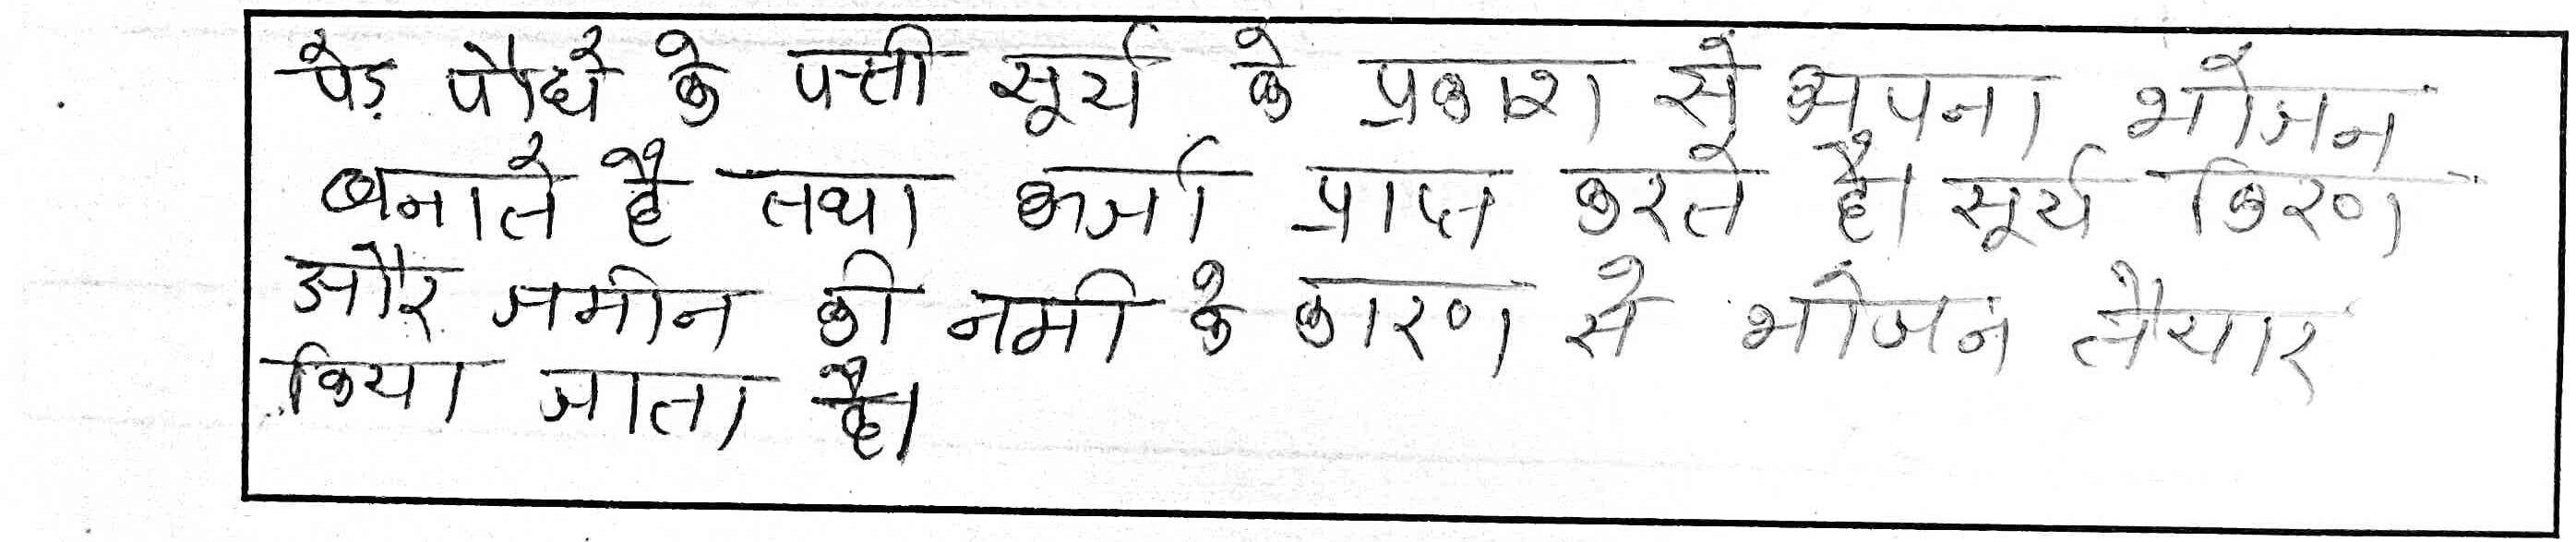 पेड़ पौधे के पत्ती सूर्य के प्रकाश से अपना भोजन
बनाते है तथा ऊर्जा प्राप्त करते है। सूर्य किरण
और जमीन की नमी के कारण से भोजन तैयार
किया जाता है।